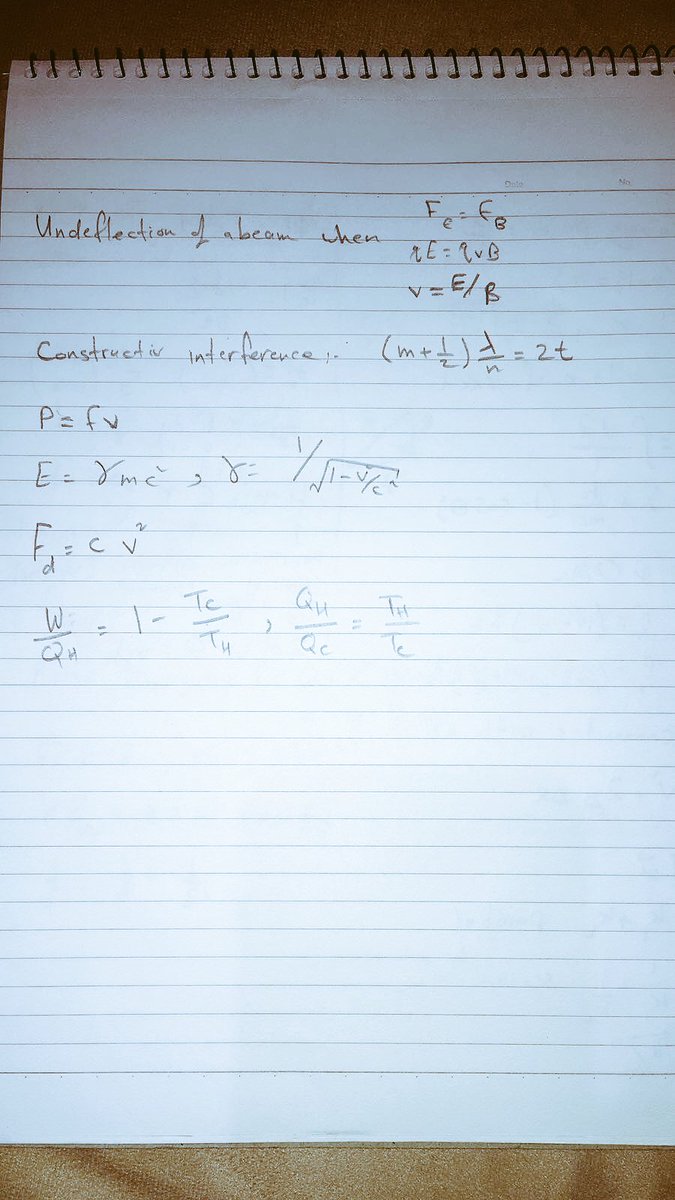 Date No.
Undeflection of a beam when F_e = F_B
qE = qvB
v = E/B
Constructiv interference:- (m + 1/2) λ/n = 2t
P = fv
E = γmc², γ = 1/√(1 - v²/c²)
F_d = c v²
W/Q_H = 1 - T_C/T_H, Q_H/Q_C = T_H/T_C